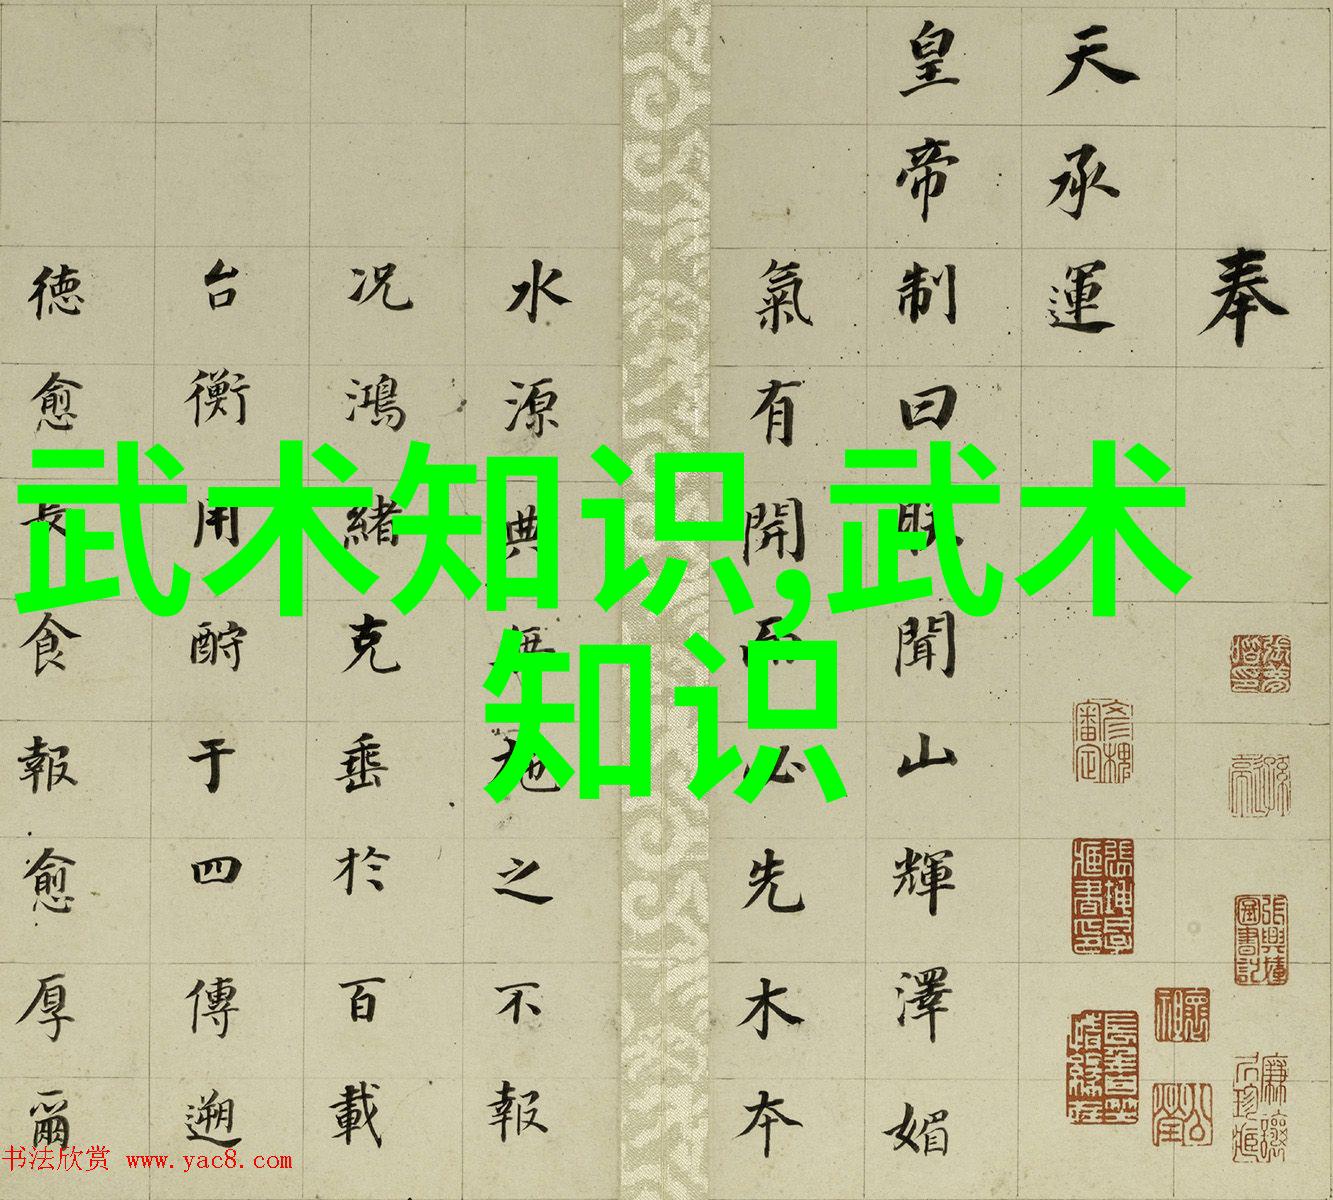 奉
天承運
皇帝制曰朕聞山輝澤媚
氣有開而必先木本
水源典無施之不報
况鴻緒克垂於百載
台衡用酧于四傳遡
德愈長食報愈厚爾
武术知识,武术
知识
书法欣赏 www.yac8.com